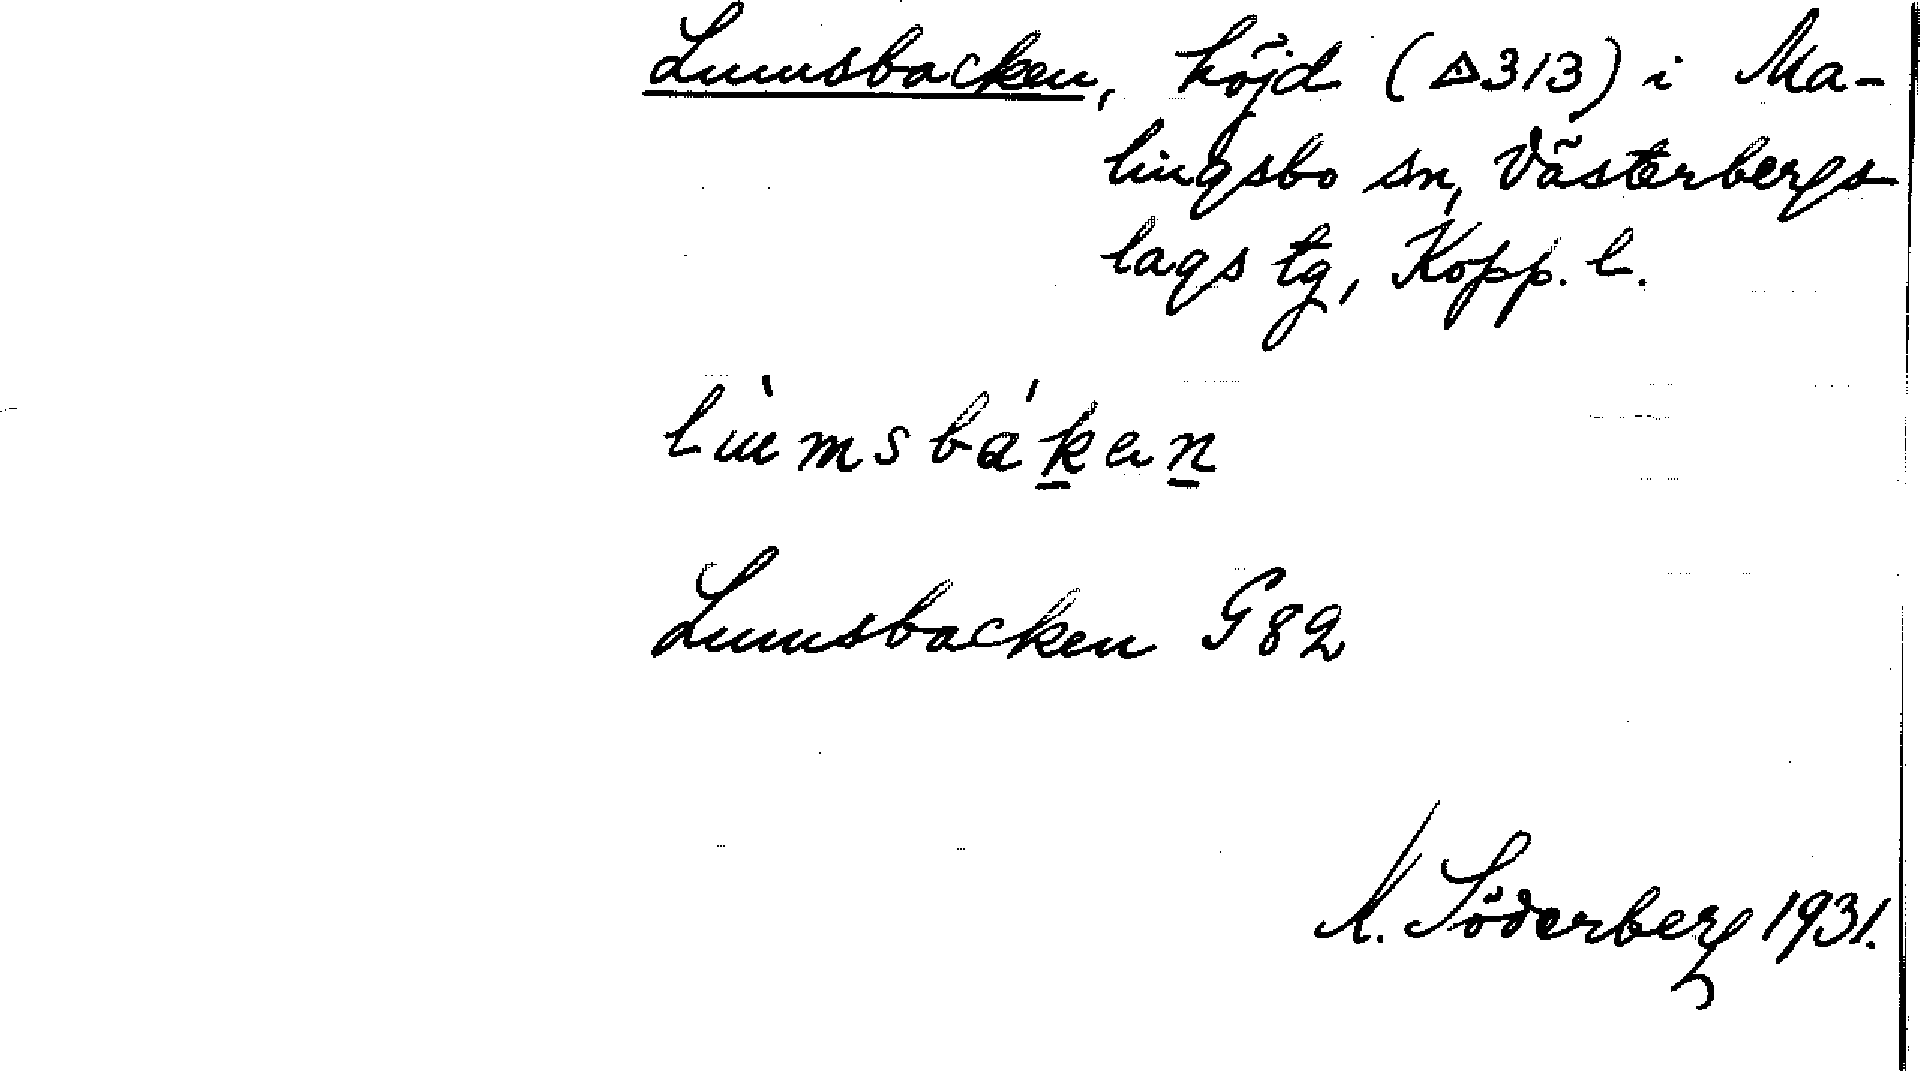 Lumsbacken, höjd (△313) i Ma-
lingsbo sn, Västerbergs
lags tg, Kopp. l.
Lumsbacken G82
K. Söderberg 1931.